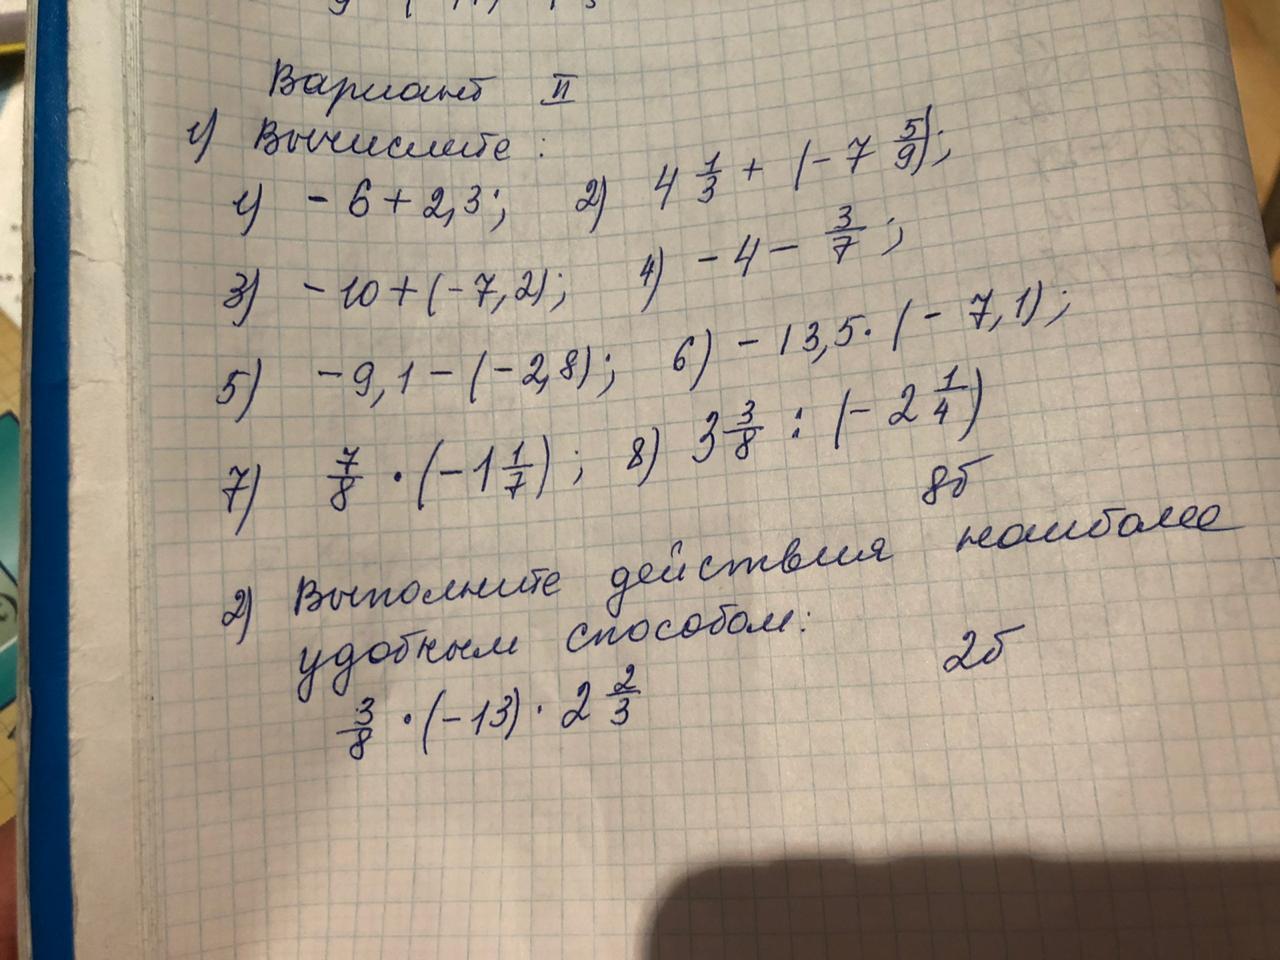 Вариант II
1) Вычислите:
1) - 6 + 2,3; 2) 4 1/3 + (- 7 5/9);
3) - 10 + (- 7,2); 4) - 4 - 3/7;
5) - 9,1 - (- 2,8); 6) - 13,5 · (- 7,1);
7) 7/8 · (- 1 1/7); 8) 3 3/8 : (- 2 1/4)
8б
2) Выполните действия наиболее
удобным способом:
2б
3/8 · (- 13) · 2 2/3